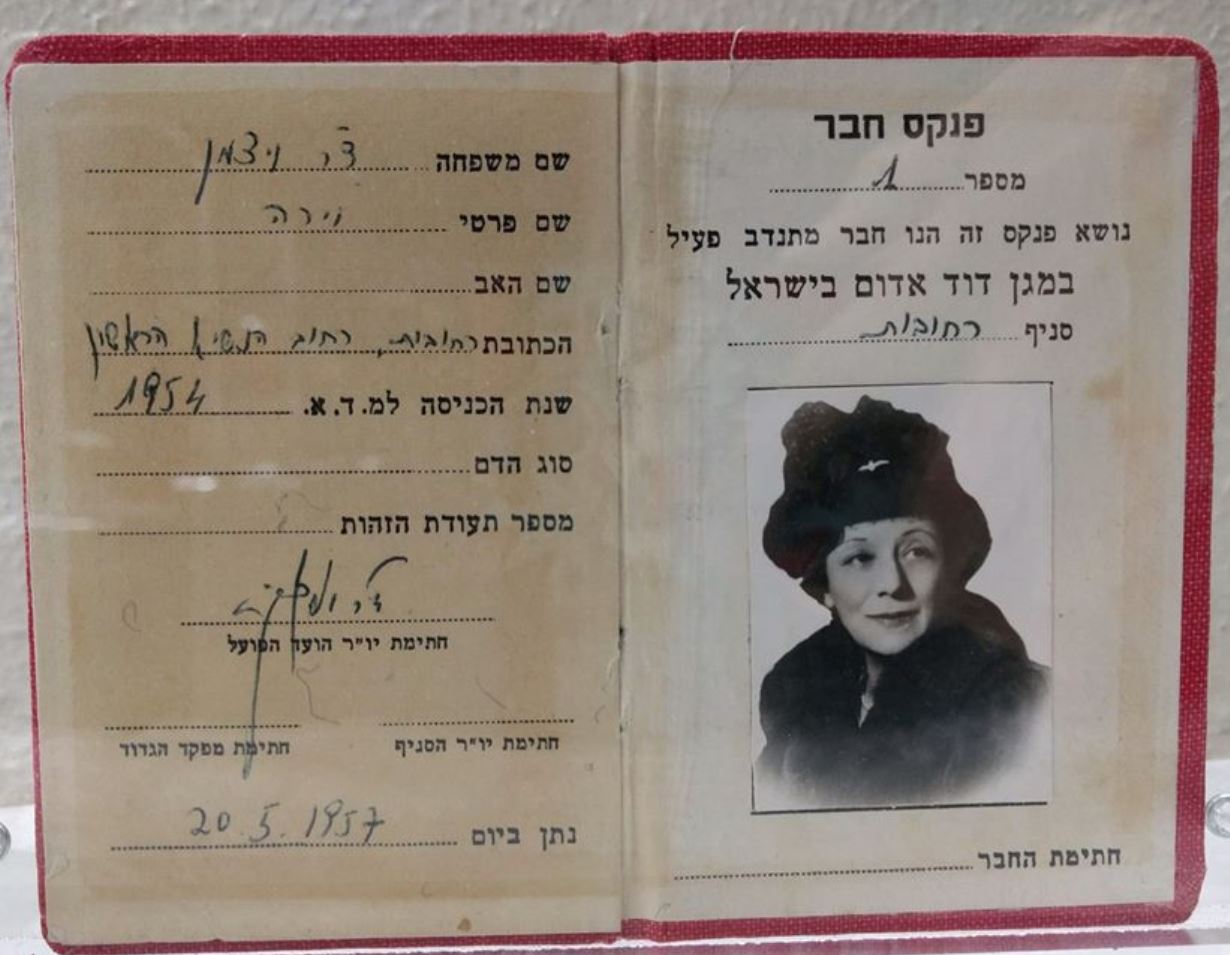 פנקס חבר
מספר 1
נושא פנקס זה הנו חבר מתנדב פעיל
במגן דוד אדום בישראל
סניף רחובות
חתימת החבר
שם משפחה ד"ר ויצמן
שם פרטי וירה
שם האב
הכתובת רחובות, רחוב הנשיא הראשון
שנת הכניסה למ.ד.א. 1954
סוג הדם
מספר תעודת הזהות
חתימת יו"ר הועד הפועל
חתימת יו"ר הסניף חתימת מפקד הגדוד
נתן ביום 20.5.1957